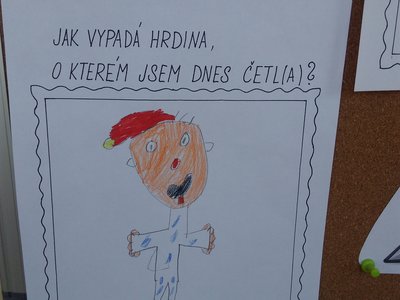 JAK VYPADÁ HRDINA,
O KTERÉM JSEM DNES ČETL(A)?